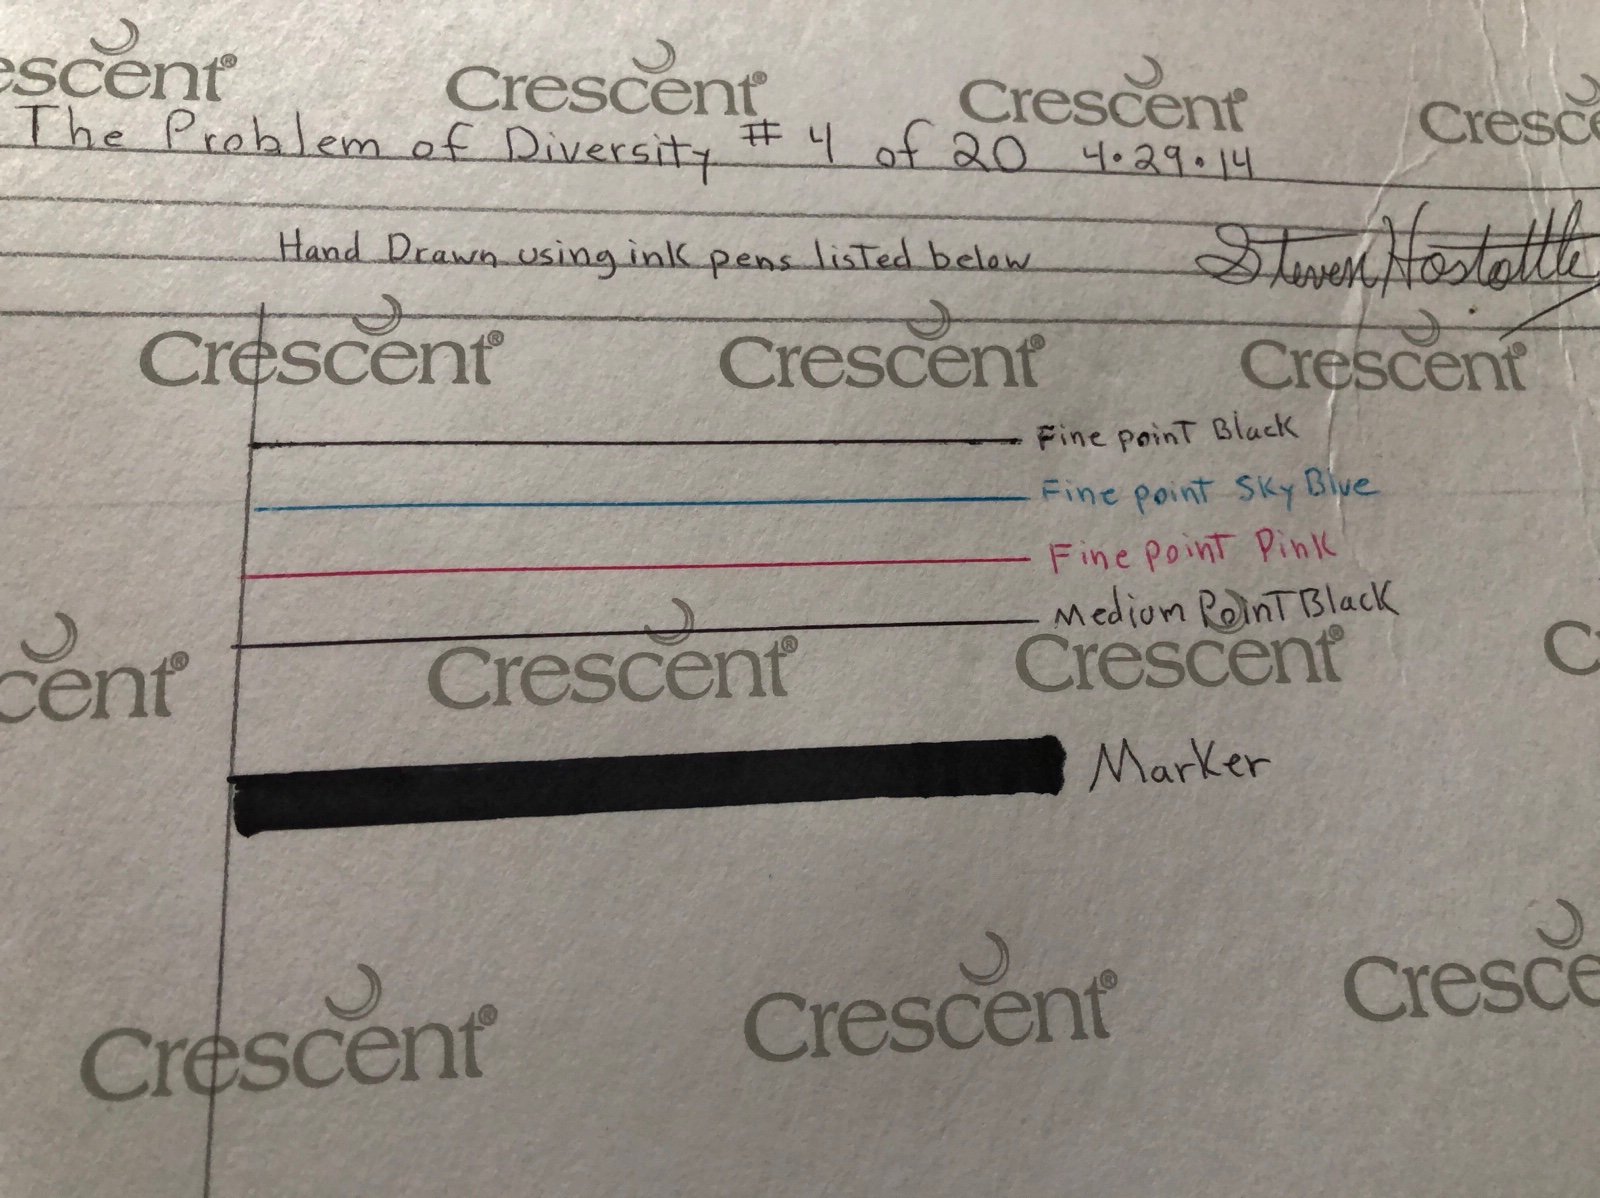 escent®
Crescent®
Crescent®
Cresce
The Problem of Diversity # 4 of 20 4•29•14
Hand Drawn using ink pens listed below
Steven Hostottle
Crescent®
Crescent®
Crescent®
Fine point Black
Fine point Sky Blue
Fine point Pink
Medium Point Black
cent®
Crescent®
Crescent®
C
Marker
Crescent®
Crescent®
Cresce